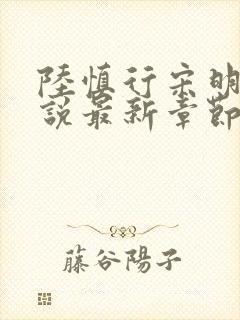 陸慎行宋明
說最新章節
藤谷陽子